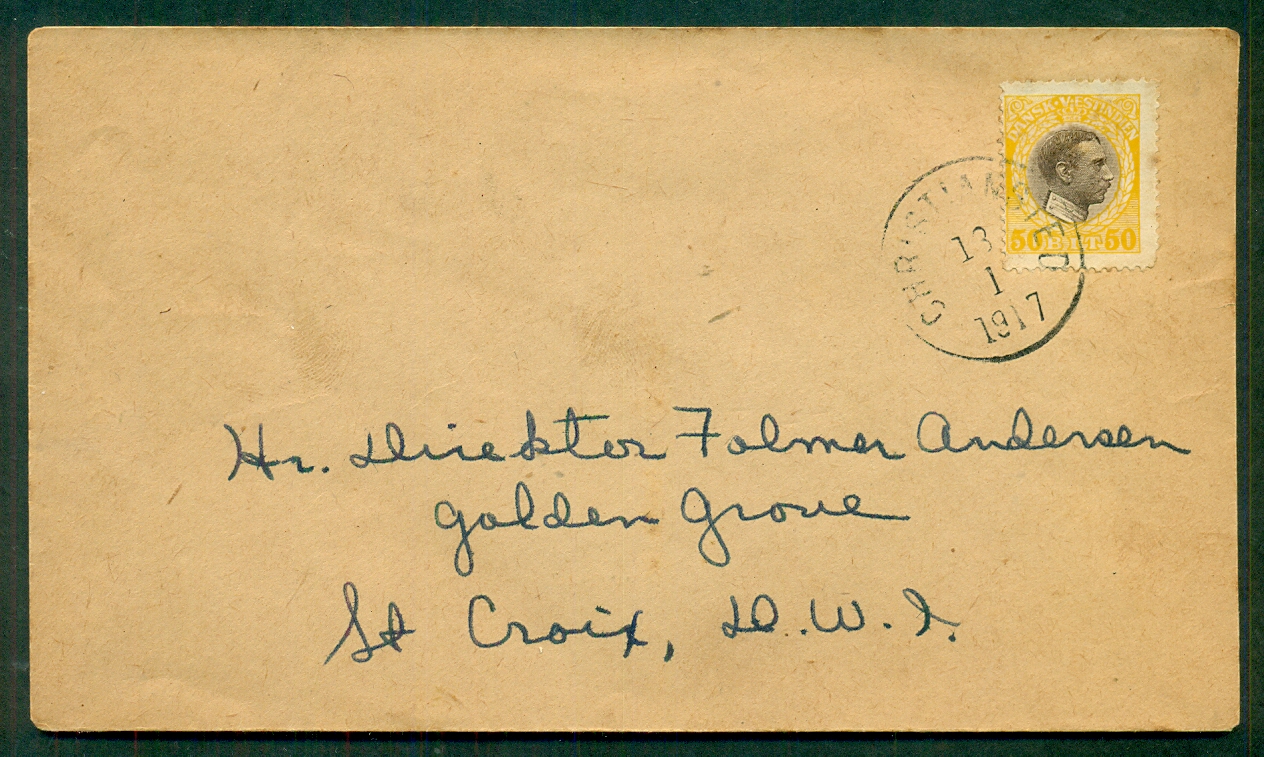 DANSK-VESTINDIEN
50 BIT 50
CHRISTIANSTED
13
1
1917
Hr. Direktor Folmer Andersen
Golden Grove
St Croix, D.W.I.